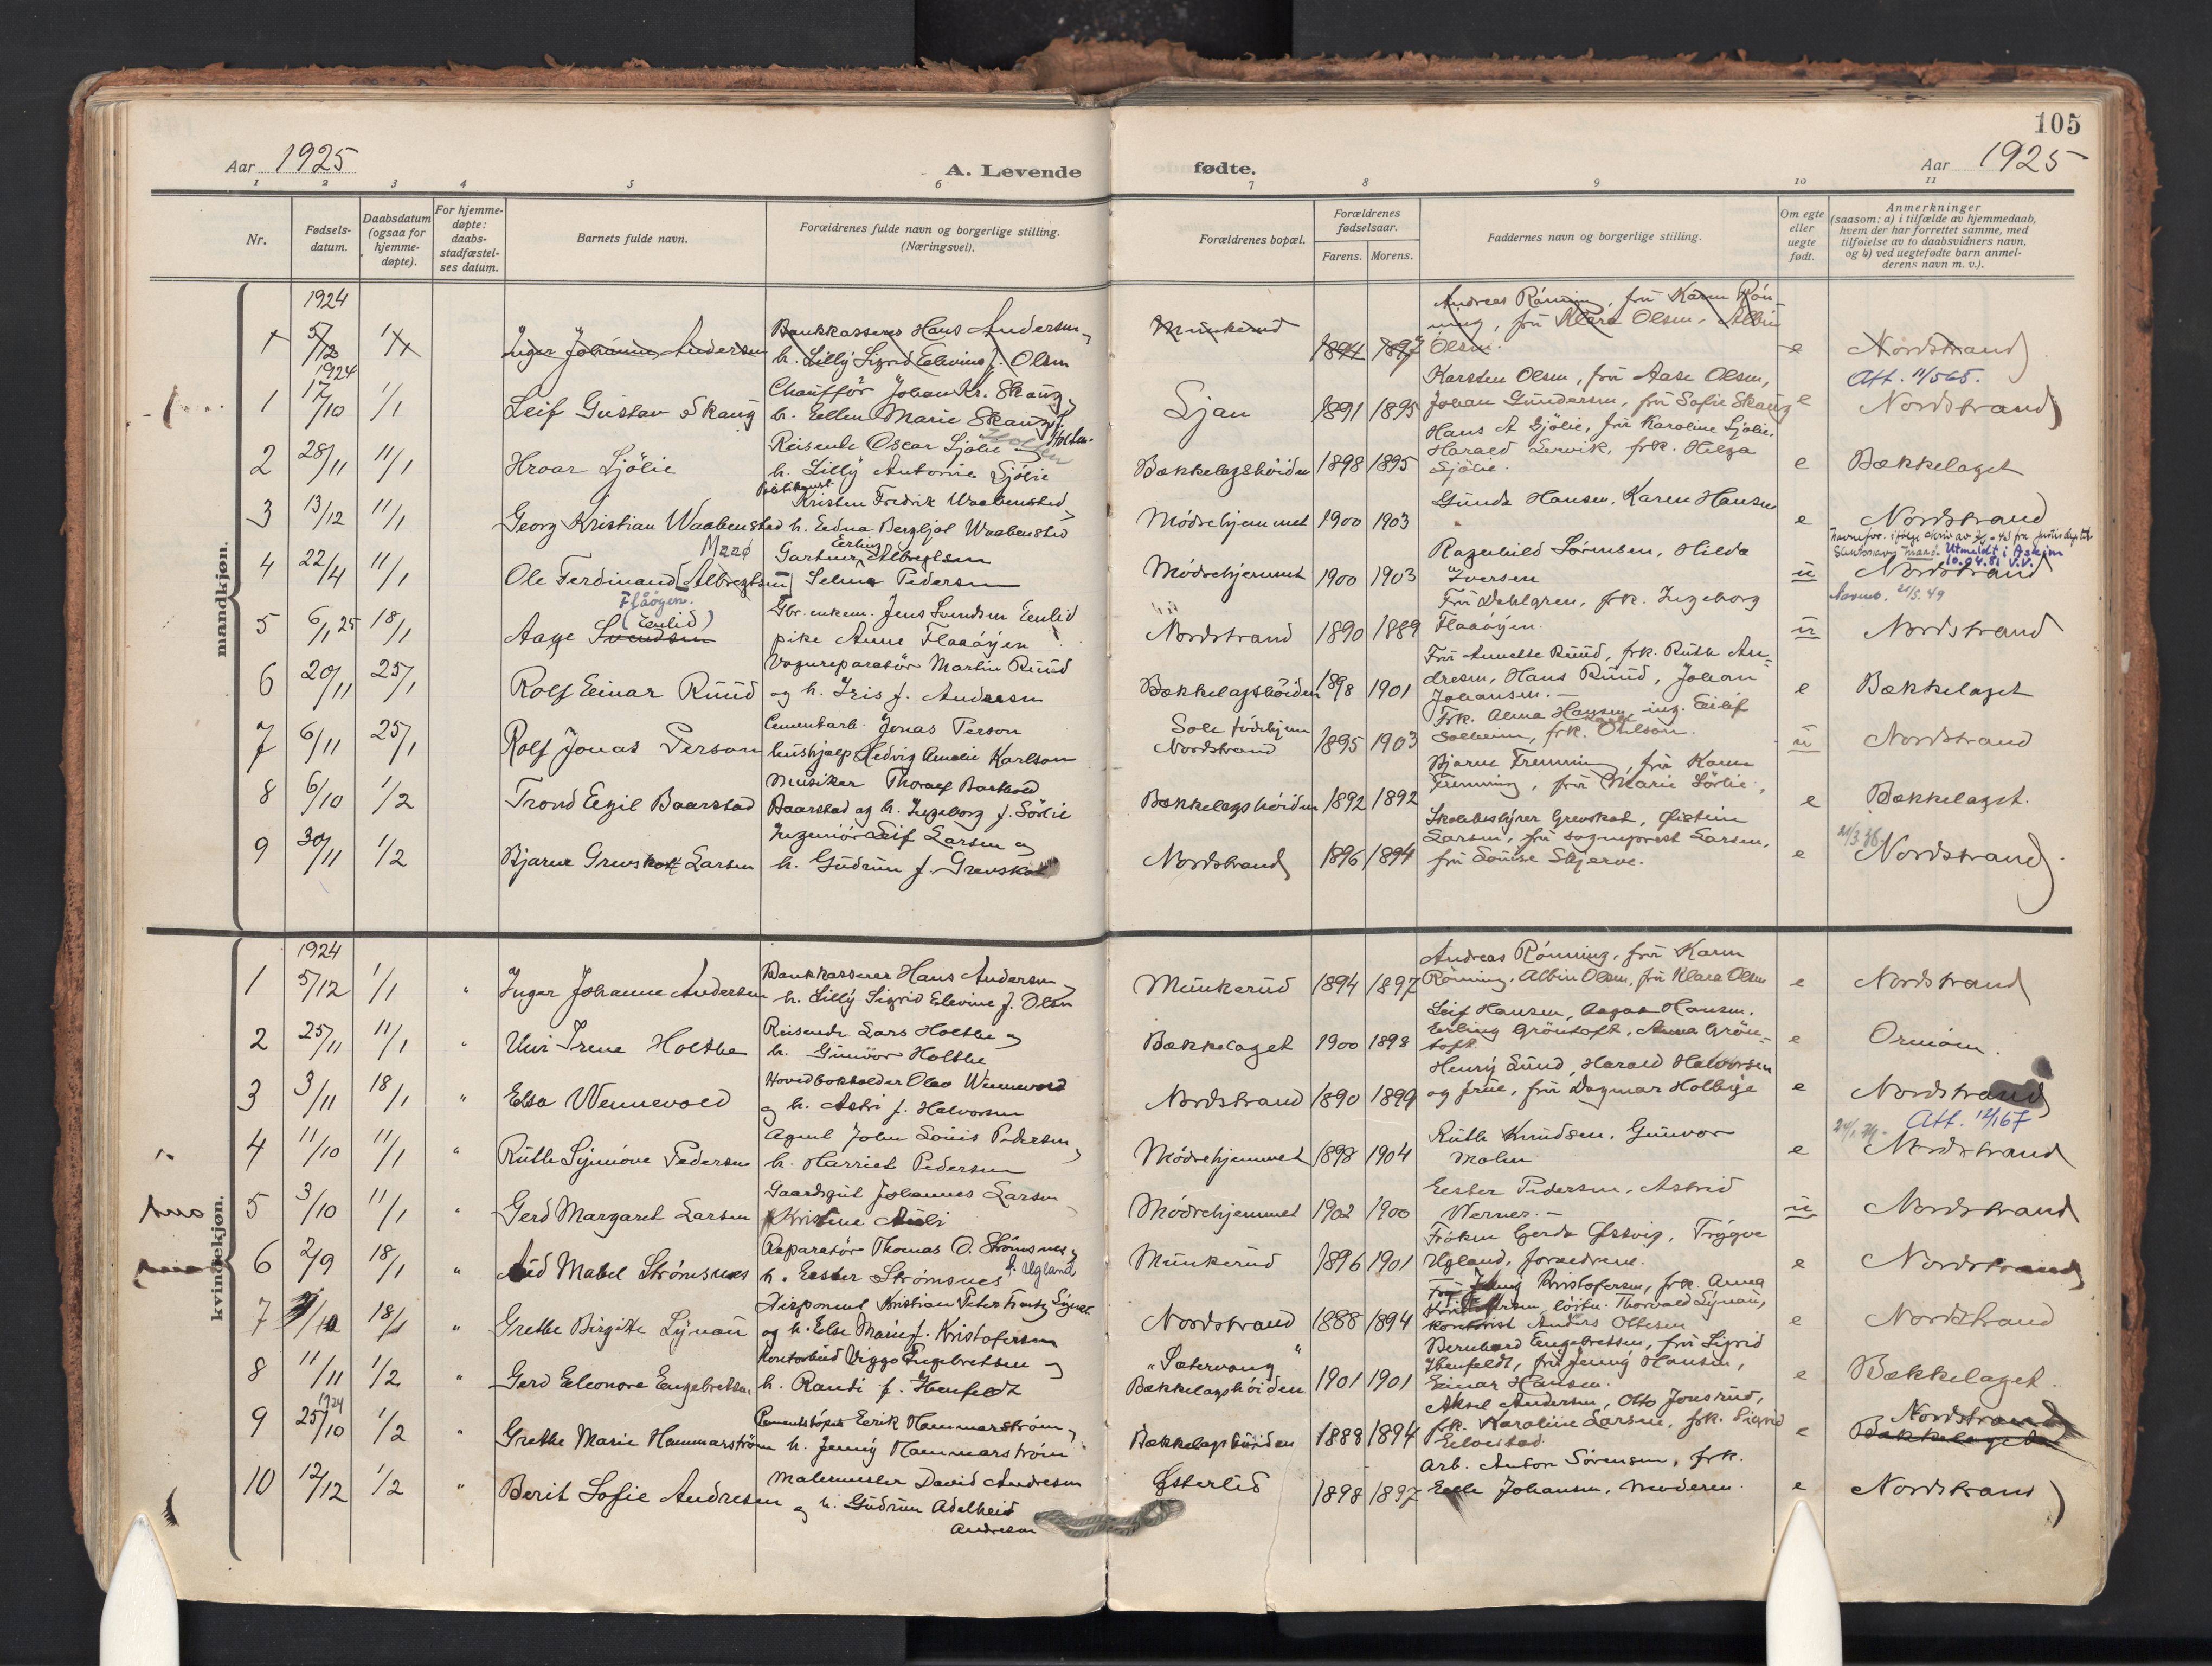 105
Aar 1925
A. Levende fødte.
Aar 1925
1 2 3 4 5 6 7 8 9 10 11
Nr.
Fødsels-
datum.
Daabsdatum
(ogsaa for
hjemme-
døpte).
For hjemme-
døpte:
daabs-
stadfæstel-
ses datum.
Barnets fulde navn.
Forældrenes fulde navn og borgerlige stilling.
(Næringsvei).
Forældrenes bopæl.
Forældrenes
fødselsaar.
Farens. Morens.
Faddernes navn og borgerlige stilling.
Om egte
eller
uegte
født.
Anmerkninger
(saasom: a) i tilfælde av hjemmedaab,
hvem der har forrettet samme, med
tilføielse av to daabsvidners navn,
og b) ved uegtefødte barn anmel-
derens navn m. v.).
mandkjøn.
1924
1 5/12 1/1 Inger Johanne Andersen
Bankkasserer Hans Andersen
h. Lilly Sigrid Elevine f. Olsen
Munkerud 1894 1897
Andreas Rönning, fru Karen Rön-
ning, fru Klara Olsen, Albin
Olsen.
e Nordstrand
1924
1 17/10 1/1 Leif Gustav Skaug
Chauffør Johan Kr. Skaug
h. Ellen Marie Skaug f. Holm
Ljan 1891 1895
Karsten Olsen, fru Aase Olsen,
Johan Gundersen, fru Sofie Skaug
e Att. 11/565.
Nordstrand
2 28/11 11/1 Hroar Sjölie
Reisende Oscar Sjölie
h. Lilly Antonie Sjölie
Bækkelagshöiden 1898 1895
Hans A Sjölie, fru Karoline Sjölie,
Harald Lervik, frk. Helga
Sjölie.
e Bækkelaget
3 13/12 11/1 Georg Kristian Waabensted
Kristen Fredrik Waabensted
h. Edna Bergljot Waabensted
Mødrehjemmet 1900 1903
Gunda Hansen, Karen Hansen
e Nordstrand
4 22/4 11/1 Ole Ferdinand [Albregtsen] Maaø
Gartner Erling Albregtsen
Selma Pedersen
Mødrehjemmet 1900 1903
Ragnhild Sørensen, Hilda
Iversen
u Utmeldt i Askim
10.04.81 V.V.
Nordstrand
5 6/1 25 18/1 Aage Svendsen (Enlid) Flåøyen.
Gbr. enkem. Jens Svendsen Enlid
pike Anne Flaaöyen
Nordstrand 1890 1889
Fru Dahlgren, frk. Ingeborg
Flaaöyen.
u Nordstrand
6 20/11 25/1 Rolf Einar Ruud
Vognreparatør Martin Ruud
og h. Iris f. Andresen
Bækkelagshöiden 1898 1901
Fru Annette Ruud, frk. Ruth An-
dresen, Hans Ruud, Johan
Johansen.
e Bækkelaget
7 6/11 25/1 Rolf Jonas Person
Cementarb. Jonas Person
hushjælp Hedvig Amalie Karlson
Nordstrand 1895 1903
Frk. Alma Hansen, ing. Eilif
Solheim, frk. Ohlson.
u Nordstrand
8 6/10 1/2 Trond Egil Baarstad
Musiker Thoralf
Baarstad og h. Ingeborg f. Sörlie
Bækkelagshöiden 1892 1892
Bjarne Fremming, fru Karen
Fremming, fru Marie Sörlie,
e Bækkelaget.
9 30/11 1/2 Bjarne Grevskott Larsen
Ingeniör Leif Larsen og
h. Gudrun f. Grevskot
Nordstrand 1896 1894
Skolebestyrer Grevskot, Øistein
Larsen, fru sogneprest Larsen,
fru Louise Skjerve.
e Nordstrand
kvindekjøn.
1924
1 5/12 1/1 " Inger Johanne Andersen
Bankkasserer Hans Andersen
h. Lilly Sigrid Elevine f. Olsen
Munkerud 1894 1897
Andreas Rönning, fru Karen
Rönning, Albin Olsen, fru Klara Olsen
e Nordstrand
2 25/11 11/1 " Unni Irene Holthe
Reisende Lars Holthe og
h. Gunvor Holthe
Bækkelaget 1900 1898
Leif Hansen, Aagot Hansen,
Erling Gröntoft, Anna Grön-
toft
e Ormöen.
3 3/11 18/1 " Elsa Wennevold
Hovedbokholder Olav Wennevold
og h. Astri f. Halvorsen
Nordstrand 1890 1899
Henry Lund, Harald Halvorsen
og frue, fru Dagmar Holbye
e Nordstrand
4 11/10 11/1 " Ruth Synnöve Pedersen
Agent John Louis Pedersen
h. Harriet Pedersen
Mödrehjemmet 1898 1904
Ruth Knudsen, Gunvor
Malm
e Att. 12/167
Nordstrand
5 3/10 11/1 " Gerd Margaret Larsen
Gaardsgut Johannes Larsen
Kristine Auli
Mödrehjemmet 1902 1900
Ester Pedersen, Astrid
Werner.
u Nordstrand
6 2/9 18/1 " Aud Mabel Strømsnes
Reparatör Thomas O. Strömsnes
h. Ester Strömsnes f. Ugland
Munkerud 1896 1901
Fröken Gerda Østvig, Trygve
Ugland, forældrene.
e Nordstrand
7 18/1 " Grethe Birgitte Lynau
Disponent Kristian Peter Frantz Lynau
og h. Else Marie f. Kristofersen
Nordstrand 1888 1894
Fru Jenny Kristofersen, frk. Anna
Kristofersen, löitn. Thorvald Lynau,
kontorist Anders Ottesen
e Nordstrand
8 11/11 1/2 " Gerd Eleonore Engebretsen
Kontorbud Viggo Engebretsen og
h. Randi f. Ibenfeldt
"Sætervang"
Bækkelagshöiden 1901 1901
Bernhard Engebretsen, fru Sigrid
Ibenfeldt, fru Jenny Hansen,
Einar Hansen.
e Bækkelaget.
1924
9 25/10 1/2 " Grethe Marie Hammarström
Cementstöper Eerik Hammarström
h. Jenny Hammarström
Bækkelagshöiden 1888 1894
Aksel Andersen, Otto Jonsrud,
frk. Karoline Larsen, frk. Sigrid
Eilvestad
e Nordstrand
Bækkelaget
10 12/12 1/2 " Berit Sofie Andresen
Malermester David Andresen
og h. Gudrun Adelheid
Andresen
Østerlid 1898 1897
Arb. Anton Sörensen, frk.
Elle Johansen, moderen.
e Nordstrand